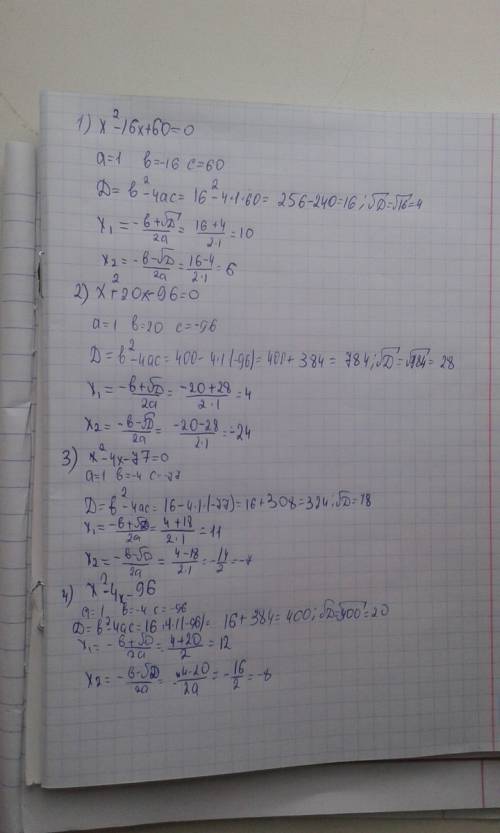 1) x²-16x+60=0
a=1 b=-16 c=60
D=b²-4ac=16²-4·1·60=256-240=16; √D=√16=4
x₁=(-b+√D)/2a=(16+4)/2·1=10
x₂=(-b-√D)/2a=(16-4)/2·1=6
2) x²+20x-96=0
a=1 b=20 c=-96
D=b²-4ac=400-4·1·(-96)=400+384=784; √D=√784=28
x₁=(-b+√D)/2a=(-20+28)/2·1=4
x₂=(-b-√D)/2a=(-20-28)/2·1=-24
3) x²-4x-77=0
a=1 b=-4 c=-77
D=b²-4ac=16-4·1·(-77)=16+308=324; √D=18
x₁=(-b+√D)/2a=(4+18)/2·1=11
x₂=(-b-√D)/2a=(4-18)/2·1=-14/2=-7
4) x²-4x-96
a=1 b=-4 c=-96
D=b²-4ac=16·4·1(-96)=16+384=400; √D=√400=20
x₁=(-b+√D)/2a=(4+20)/2=12
x₂=(-b-√D)/2a=(4-20)/2a=-16/2=-8